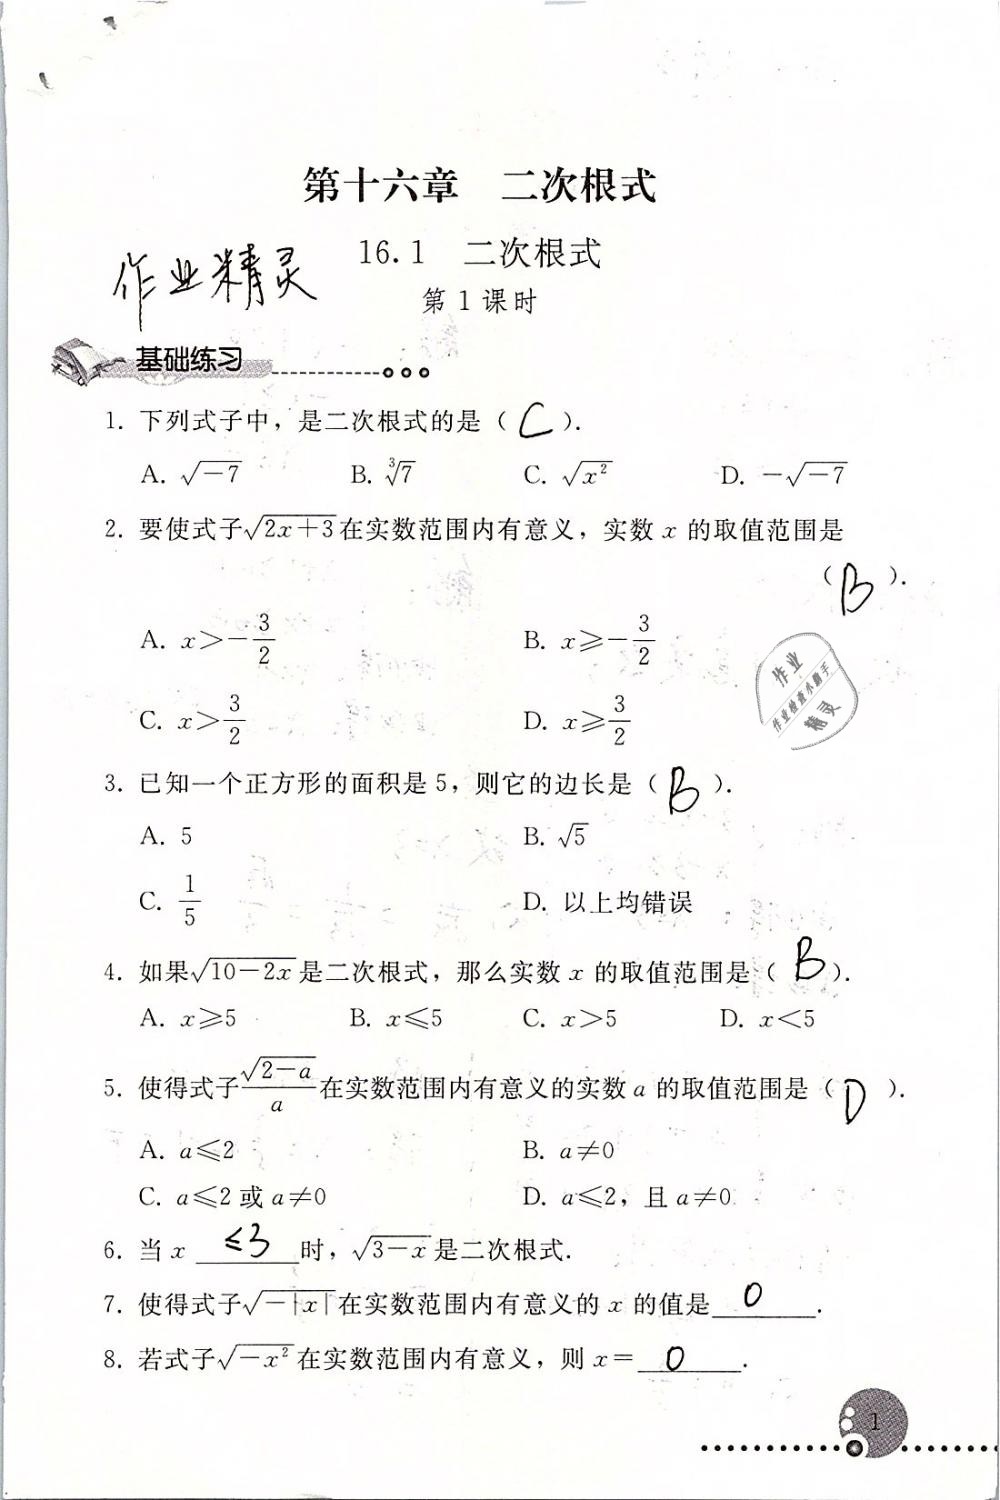 第十六章 二次根式
16.1 二次根式
作业精灵
第 1 课时
基础练习
1. 下列式子中，是二次根式的是（ C ）.
A. √−7 B. ∛7 C. √x² D. −√−7
2. 要使式子√2x+3在实数范围内有意义，实数 x 的取值范围是
（ B ）.
A. x>−3/2 B. x⩾−3/2
C. x>3/2 D. x⩾3/2
作业
作业检查小助手
精灵
3. 已知一个正方形的面积是 5，则它的边长是（ B ）.
A. 5 B. √5
C. 1/5 D. 以上均错误
4. 如果√10−2x是二次根式，那么实数 x 的取值范围是（ B ）.
A. x⩾5 B. x⩽5 C. x>5 D. x<5
5. 使得式子√2−a/a在实数范围内有意义的实数 a 的取值范围是（ D ）.
A. a⩽2 B. a≠0
C. a⩽2 或 a≠0 D. a⩽2，且 a≠0
6. 当 x ≤3 时，√3−x是二次根式.
7. 使得式子√−|x|在实数范围内有意义的 x 的值是 0 .
8. 若式子√−x²在实数范围内有意义，则 x= 0 .
1